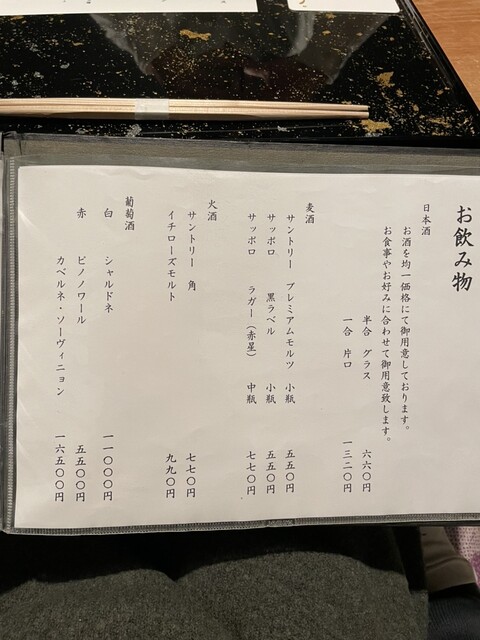 お飲み物
日本酒
お酒を均一価格にて御用意しております。
お食事やお好みに合わせて御用意致します。
半合 グラス 六六〇円
一合 片口 一三二〇円
麦酒
サントリー プレミアムモルツ 小瓶 五五〇円
サッポロ 黒ラベル 小瓶 五五〇円
サッポロ ラガー(赤星) 中瓶 七七〇円
火酒
サントリー 角 七七〇円
イチローズモルト 九九〇円
葡萄酒
白 シャルドネ 一一〇〇〇円
赤 ピノノワール 五五〇〇円
カベルネ・ソーヴィニョン 一六五〇〇円